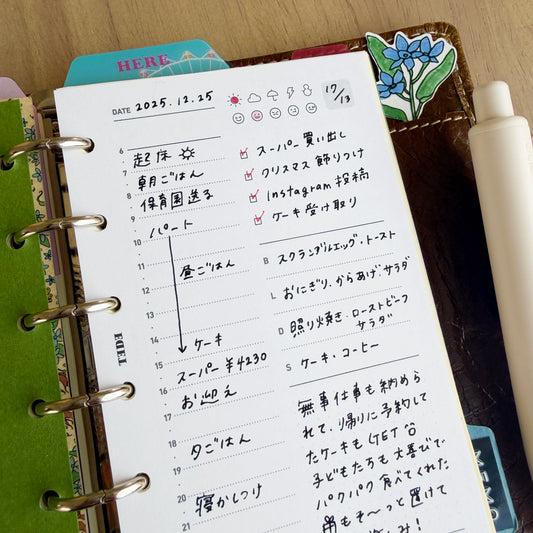 HERE
DATE 2025.12.25
17/13
6
7 起床
8 朝ごはん
9 保育園送る
10 パート
11
12 昼ごはん
13
14 ケーキ
15 スーパー ¥4230
16 お迎え
17
18 夕ごはん
19
20 寝かしつけ
21
スーパー 買い出し
クリスマス 飾りつけ
Instagram 投稿
ケーキ受け取り
B スクランブルエッグ・トースト
L おにぎり、からあげ、サラダ
D 照り焼き・ローストビーフ
サラダ
S ケーキ・コーヒー
無事仕事も納めら
れて、帰りに予約して
たケーキもGET
子どもたちも大喜びで
パクパク食べてくれた
もそ〜っと置けて
み!